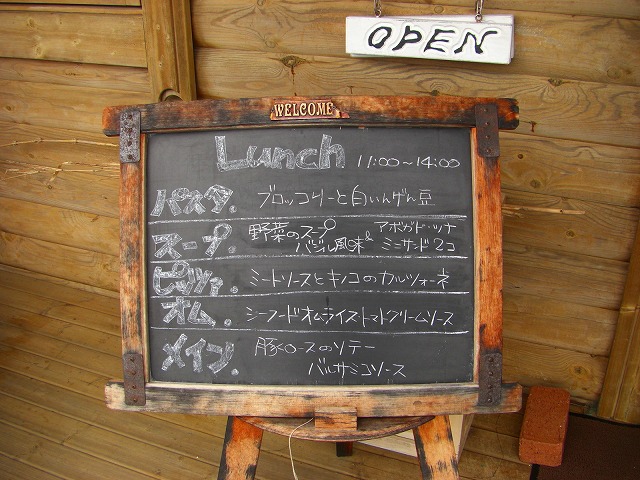 OPEN
WELCOME
Lunch 11:00~14:00
パスタ。 ブロッコリーと白いんげん豆
スープ。 野菜のスープ バジル風味 & アボガド・ツナ ミニサンド2コ
ピッツァ。 ミートソースとキノコのカルツォーネ
オム。 シーフードオムライストマトクリームソース
メイン。 豚ロースのソテー
バルサミコソース